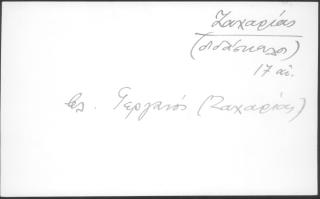 Ζαχαρίας
(διδάσκαλος)
17 αι.
βλ. Γεργανός (Ζαχαρίας)